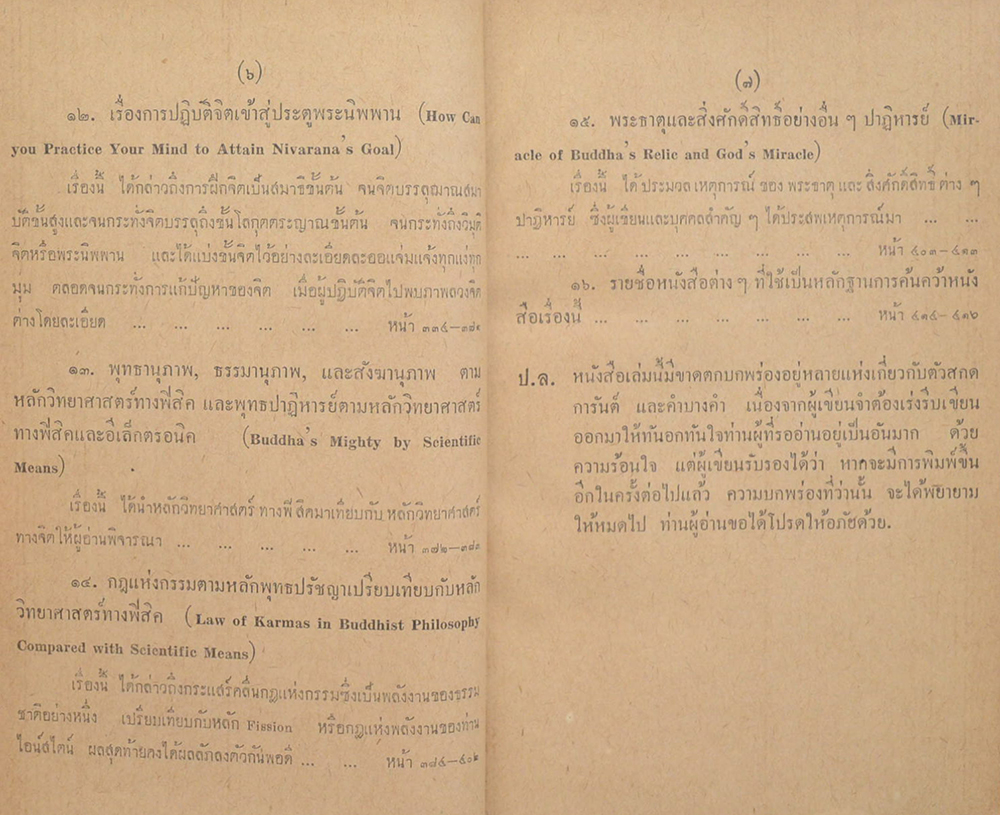 (๖)
๑๒. เรื่องการปฏิบัติจิตเข้าสู่ประตูพระนิพพาน (How Can
you Practice Your Mind to Attain Nivarana's Goal)
เรื่องนี้ ได้กล่าวถึงการฝึกจิตเป็นสมาธิขั้นต้น จนจิตบรรลุฌาณสมา
บัติขั้นสูงและจนกระทั่งจิตบรรลุถึงขั้นโลกุตตระญาณขั้นต้น จนกระทั่งถึงวิมุติ
จิตหรือพระนิพพาน และได้แบ่งขั้นจิตไว้อย่างละเอียดละออแจ่มแจ้งทุกแง่ทุก
มุม ตลอดจนกระทั่งการแก้ปัญหาของจิต เมื่อผู้ปฏิบัติจิตไปพบภาพลวงจิต
ต่างโดยละเอียด ... ... ... ... ... ... หน้า
๑๓. พุทธานุภาพ, ธรรมานุภาพ, และสังฆานุภาพ ตาม
หลักวิทยาศาสตร์ทางฟิสิค และพุทธปาฏิหารย์ตามหลักวิทยาศาสตร์
ทางฟิสิคและอีเล็กตรอนิค (Buddha's Mighty by Scientific
Means)
เรื่องนี้ ได้นำหลักวิทยาศาสตร์ ทางฟิสิคมาเทียบกับ หลักวิทยาศาสตร์
ทางจิตให้ผู้อ่านพิจารณา ... ... ... ... ... หน้า
๑๔. กฎแห่งกรรมตามหลักพุทธปรัชญาเปรียบเทียบกับหลัก
วิทยาศาสตร์ทางฟิสิค (Law of Karmas in Buddhist Philosophy
Compared with Scientific Means)
เรื่องนี้ ได้กล่าวถึงกระแสร์คลื่นกฎแห่งกรรมซึ่งเป็นพลังงานของธรรม
ชาติอย่างหนึ่ง เปรียบเทียบกับหลัก Fission หรือกฎแห่งพลังงานของท่าน
ไอน์สไตน์ ผลสุดท้ายคงได้ผลลัภลงตัวกันพอดี ... ... หน้า
(๗)
๑๕. พระธาตุและสิ่งศักดิ์สิทธิ์อย่างอื่น ๆ ปาฏิหารย์ (Mir-
acle of Buddha's Relic and God's Miracle)
เรื่องนี้ ได้ ประมวล เหตุการณ์ ของ พระธาตุ และ สิ่งศักดิ์สิทธิ์ ต่าง ๆ
ปาฏิหารย์ ซึ่งผู้เขียนและบุคคลสำคัญ ๆ ได้ประสพเหตุการณ์มา ... ...
... ... ... ... ... ... ... ... ... หน้า ๔๐๓—๔๑๓
๑๖. รายชื่อหนังสือต่าง ๆ ที่ใช้เป็นหลักฐานการค้นคว้าหนัง
สือเรื่องนี้ ... ... ... ... ... ... ... หน้า ๔๑๔—๔๑๖
ป.ล. หนังสือเล่มนี้มีขาดตกบกพร่องอยู่หลายแห่งเกี่ยวกับตัวสกด
การันต์ และคำบางคำ เนื่องจากผู้เขียนจำต้องเร่งรีบเขียน
ออกมาให้ทันอกทันใจท่านผู้ที่รออ่านอยู่เป็นอันมาก ด้วย
ความร้อนใจ แต่ผู้เขียนรับรองได้ว่า หากจะมีการพิมพ์ขึ้น
อีกในครั้งต่อไปแล้ว ความบกพร่องที่ว่านั้น จะได้พยายาม
ให้หมดไป ท่านผู้อ่านขอได้โปรดให้อภัยด้วย.